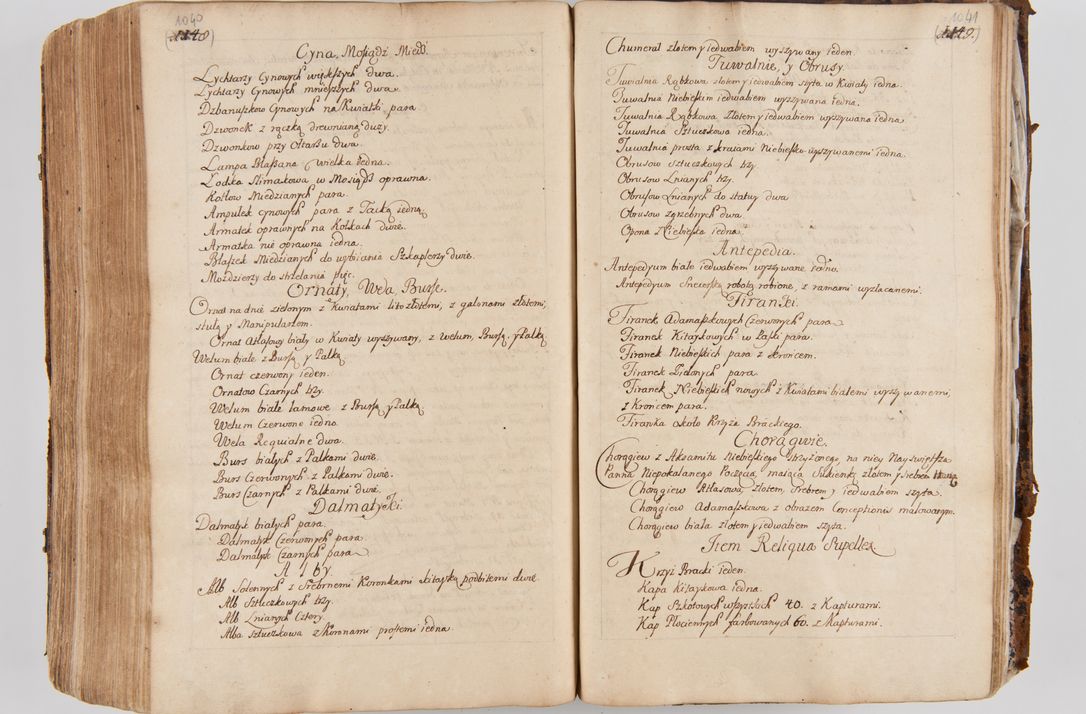 1040
(1148)
Cyna, Mosiądz Miedź.
Lychtarzy Cynowych większych dwa.
Lychtarzy Cynowych mnieyszych dwa
Dzbanuszkow Cynowych na Kwiatki para
Dzwonek z rączką drewnianą duży.
Dzwonkow przy Ołtarzu dwa.
Lampa Blaszana wielka iedna.
Łodka Slimakowa w Mosiądz oprawna.
Kotłow Miedzianych para.
Ampułek cynowych para z Tacką iedną
Armatek oprawnych na Kołkach dwie.
Armatka nie oprawna iedna.
Blaszek Miedzianych do wybiiania Szkaplerzy dwie.
Mozdzierzy do strzelania pięć.
Ornaty, Wela, Bursę.
Ornat na dnie zielonym z Kwiatami lito złotemi, z galonami złotemi,
stułą y Manipularzem.
Ornat Atłasowy biały w Kwiaty wyszywany, z welum, Bursą, y Palką
Welum białe z Bursą y Palką
Ornat czerwony ieden.
Ornatow Czarnych trzy.
Welum białe lamowe z Bursą y Palką
Welum Czerwone iedno
Wela Requialne dwa.
Burs białych z Palkami dwie.
Burs Czerwonych z Palkami dwie.
Burs Czarnych z Palkami dwie.
Dalmatyki.
Dalmatyk białych para.
Dalmatyk Czerwonych para
Dalmatyk Czarnych para
Alby
Alb Solennych z Srebrnemi Koronkami kitayką podbitemi dwie
Alb Sztuczkowych trzy.
Alb Lnianych Cztery
Alba sztuczkowa z Koronami prostemi iedna.
1041
(1149.)
Chumerał złotem y iedwabiem wyszywany ieden.
Tuwalnie, y Obrusy.
Tuwalnia Rąbkowa złotem y iedwabiem szyta w Kwiaty iedna.
Tuwalnia Niebieskim iedwabiem wyszywana iedna.
Tuwalnia Rąbkowa Złotem y iedwabiem wyszywana iedna
Tuwalnia Sztuczkowa iedna.
Tuwalnia prosta z krasami Niebiesko wyszywanemi iedna.
Obrusow sztuczkowych trzy.
Obrusow Lnianych trzy.
Obrusow Lnianych do statuy dwa
Obrusow zgrzebnych dwa.
Opona Niebieska iedna.
Antepedia.
Antepedyum białe iedwabiem wyszywane iedno.
Antepedyum robotą robione, z ramami wyzłacanemi.
Firanki.
Firanek Adamaszkowych Czerwonych para
Firanek Kitaykowych w Paski para.
Firanek Niebieskich para z Krońcem.
Firanek Zielonych para.
Firanek Niebieskich nowych z Kwiatami białemi wyszywanemi,
z Krońcem para.
Firanka około Krzyża Brackiego.
Chorągwie.
Chorągiew z Aksamitu Niebieskiego strzyżonego na niey Nayświętsza
Panna Niepokalanego Poczęcia maiąca Sukienkę złotem y srebrem
Chorągiew Atłasowa, złotem, srebrem y iedwabiem szyta.
Chorągiew Adamaszkowa z obrazem Conceptionis malowanym.
Chorągiew biała złotem y iedwabiem szyta.
Item Reliqua Supellex
Krzyż Bracki ieden.
Kapa Kitaykowa iedna.
Kap Szkotowych wszystkich 40. z Kapturami.
Kap Płociennych farbowanych 60. z Kapturami.